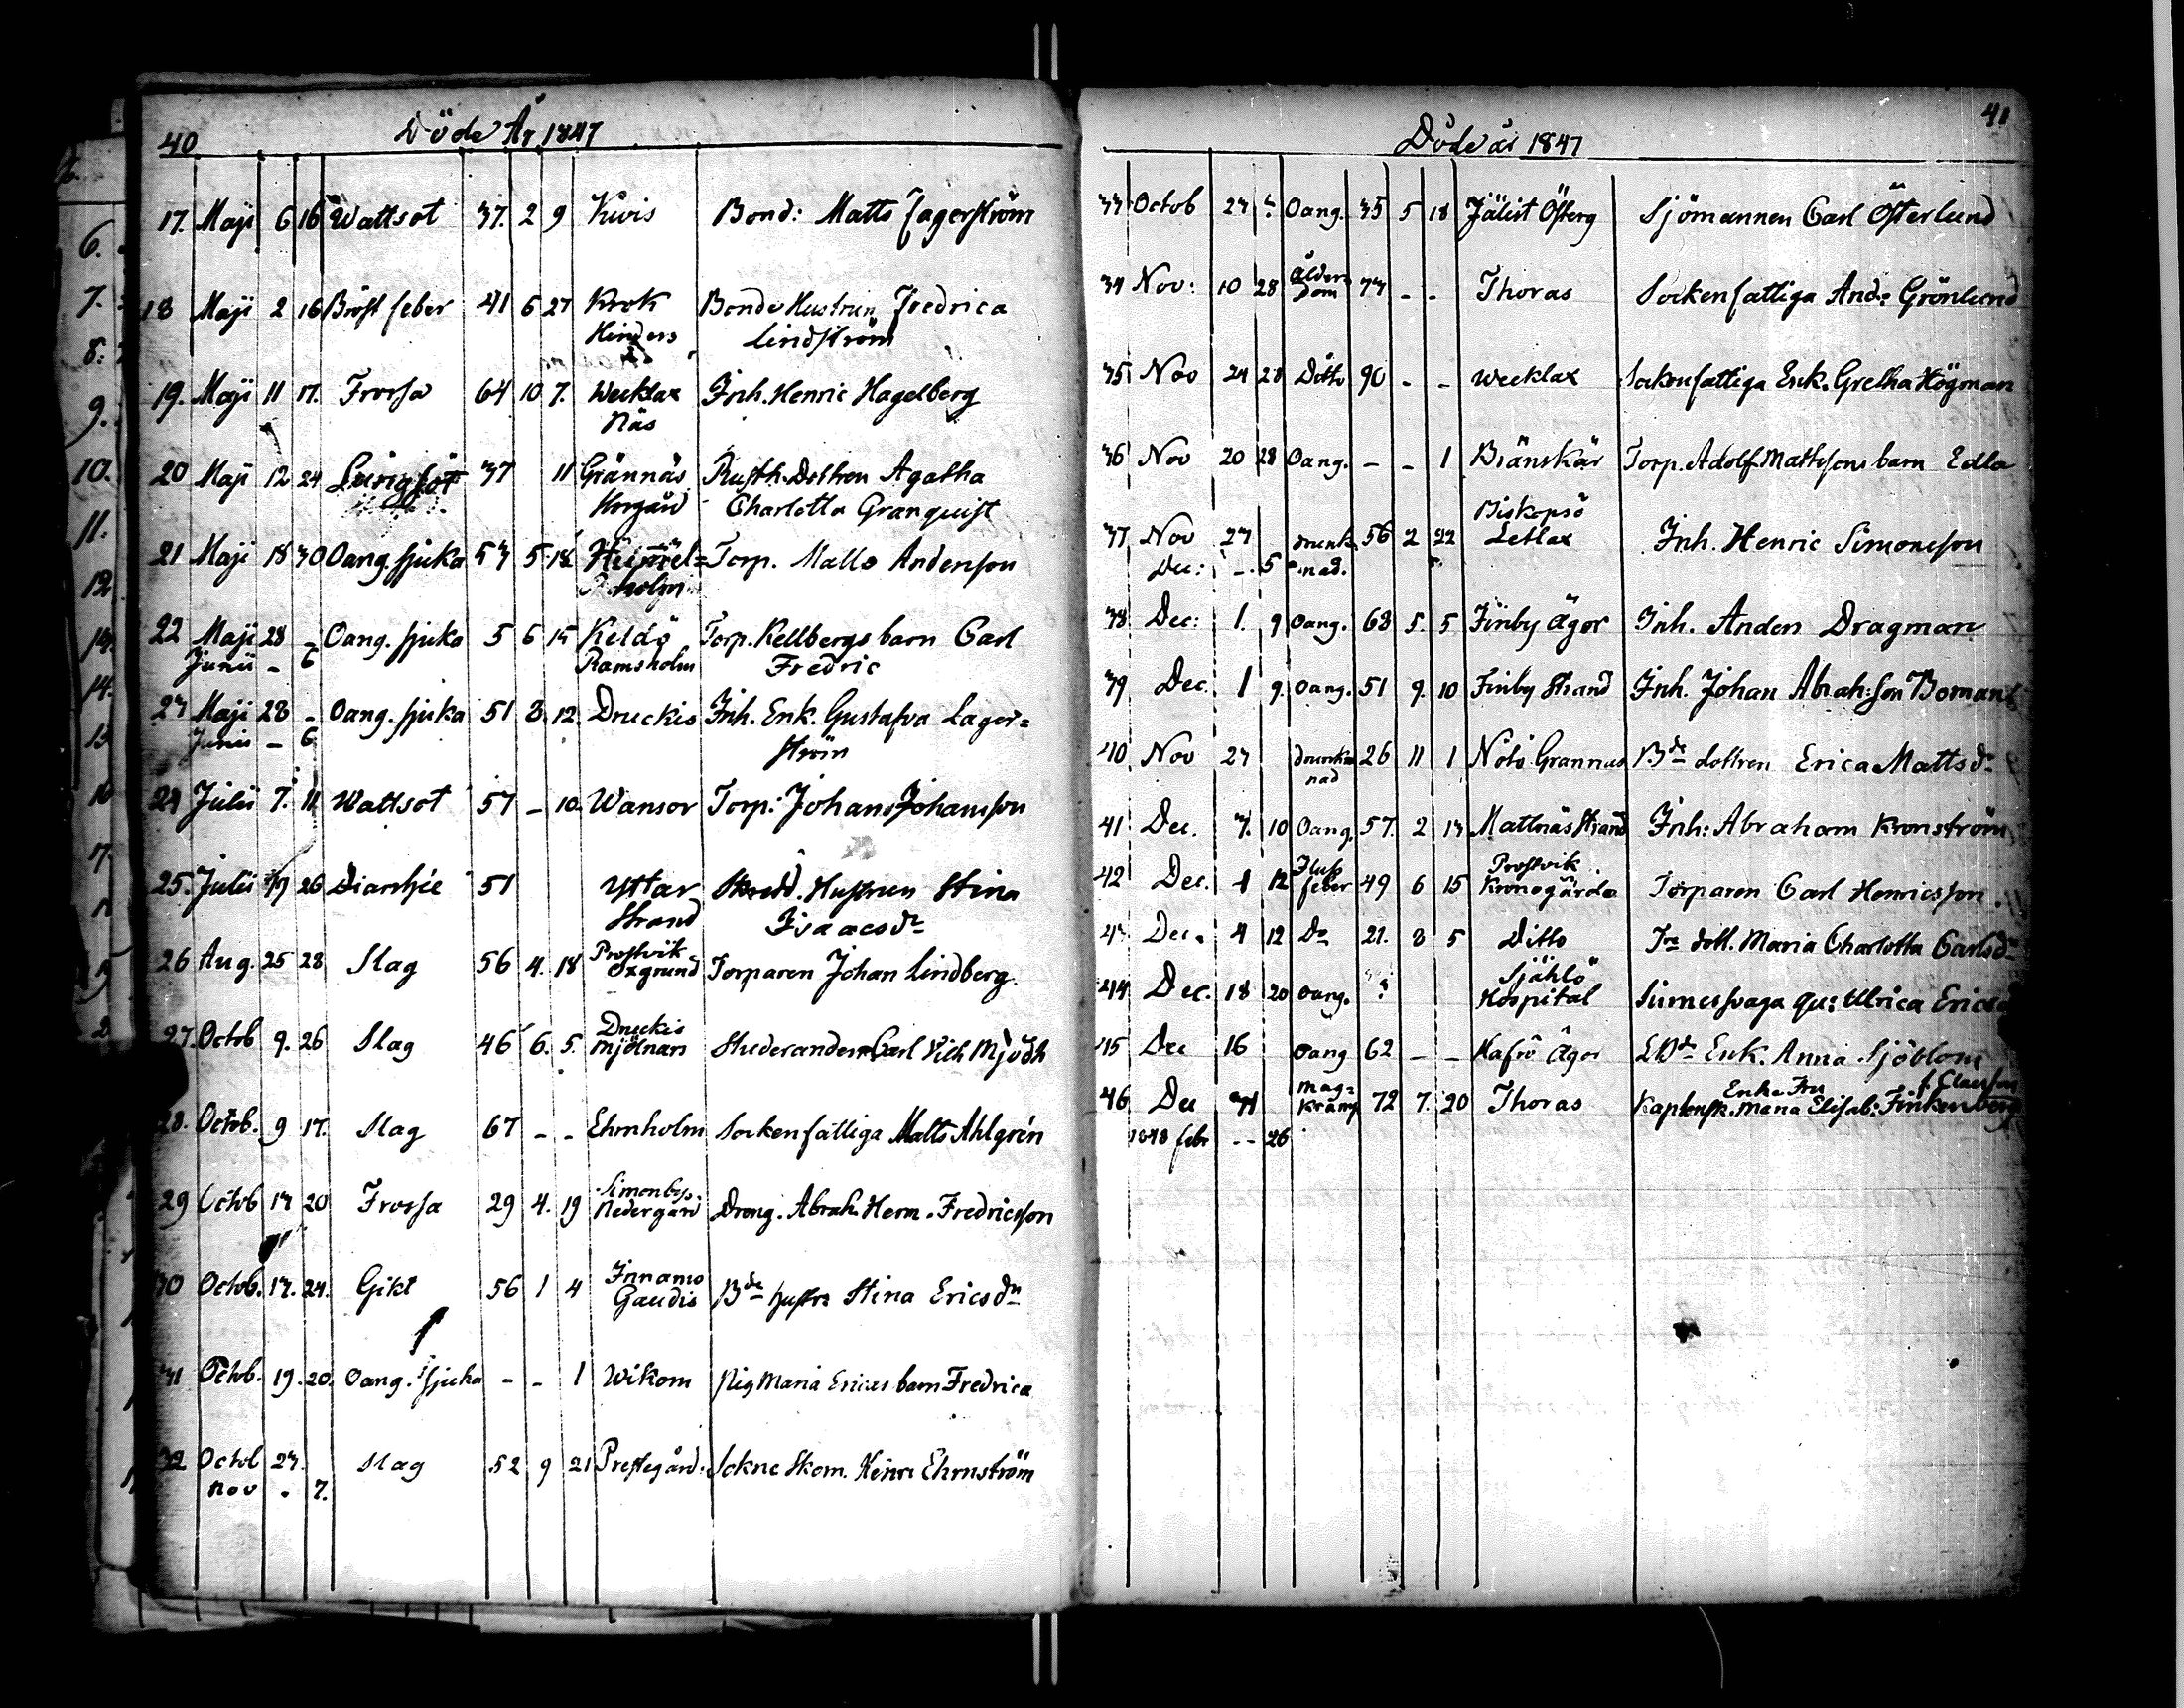 40
Döde År 1847
17. Maji 6 16 Wattsot 37. 2 9 Kivis Bond: Matts Fagerström
18 Maji 2 16 Bröst feber 41 6 27 Krok Bonde Hustrun Fredrica
Hinders Lindström
19. Maji 11 17. Frossa 64 10 7. Wecklax Inh. Henric Hagelberg
Näs
20 Maji 12 24 Lungsot 37 11 Grännäs Rusth. Dottren Agatha
Norgård Charlotta Granquist
21 Maji 18 30 Oang. sjuka 53 5 18 Torp. Matts Anderson
holm
22 Maji 28 - Oang. sjuka 5 6 15 Keldö Torp. Kellbergs barn Carl
Junii - 6 Ramsholm Fredric
23 Maji 28 - Oang. sjuka 51 8 12. Druckis Inh. Enk. Gustafva Lager=
Junii - 6 ström
24 Julii 7. 11 Wattsot 57 - 10. Wansor Torp: Johan Johansson
25. Julii 19 26 Diarrhée 51 Yttar Skredd. Hustrun Stina
Strand Isaacsdr
26 Aug. 25 28 Slag 56 4. 18 Prostvik Torparen Johan Lindberg.
Oxgrund
27. Octob 9. 26 Slag 46 6. 5. Druckis Studeranden Carl Vilh Mjödh
Mjölnars
28. Octob. 9 17. Slag 67 - - Ehrnholm Sockenfattiga Matts Ahlgrén
29 Octob 13 20 Frossa 29 4. 19 Simonby Dreng. Abrah. Herm. Fredricsson
Nedergård
30 Octob. 13. 24. Gikt 56 1 4 Innamo Bde hustr: Stina Ericsdr
Gaudis
31 Octob. 19. 20. Oang. sjuka - - 1 Wikom Pig Maria Ericas barn Fredrica
32 Octob 23. Slag 52 9 21 Prestegård: Sokne Skom. Henr: Ehrnström
Nov . 7.
41
Döde år 1847
33 Octob 23 Oang. 35 5 18 Jälist Österg Sjömannen Carl Österlund
34 Nov: 10 28 Ålder= 73 - - Thoras Sockenfattiga And: Grönlund
dom
35 Nov 24 28 Ditto 90 - - Wecklax Sockenfattiga Enk. Gretha Högman
36 Nov 20 28 Oang. - - 1 Bränskär Torp. Adolf Mattssons barn Edla
Biskopsö
37 Nov 23 drunk= 56 2 22 Letlax Inh. Henric Simonsson
Dec: - 5 nad.
38 Dec: 1. 9 Oang. 68 5. 5 Finby Ägor Inh. Anders Dragman
39 Dec. 1 9. Oang. 51 9. 10 Finby Strand Inh. Johan Abrah:son Boman
40 Nov 23 drunk= 26 11 1 Nötö Grannas Bde dottren Erica Mattsdr
nad
41 Dec. 3. 10 Oang. 57. 2 13 Mattnäs Strand Inh: Abraham Kronström
42 Dec. 1 12 Fluss Prostvik
feber 49 6 15 Kronogårda Torparen Carl Henricsson.
43 Dec. 4 12 Do 21. 8 5 Ditto Tre dott. Maria Charlotta Carlsdr
44 Dec. 18 20 Oang. ? Själlö
Hospital Sinnessvaga qu: Ulrica
45 Dec 16 Oang 62 - - Hafrö Ägor Enk. Anna Sjöblom
46 Dec 31 Mag= 72 7. 20 Thoras Enke Fru f. Clauson
kramp Maria Elisab: Finkenberg
1848 febr - - 26